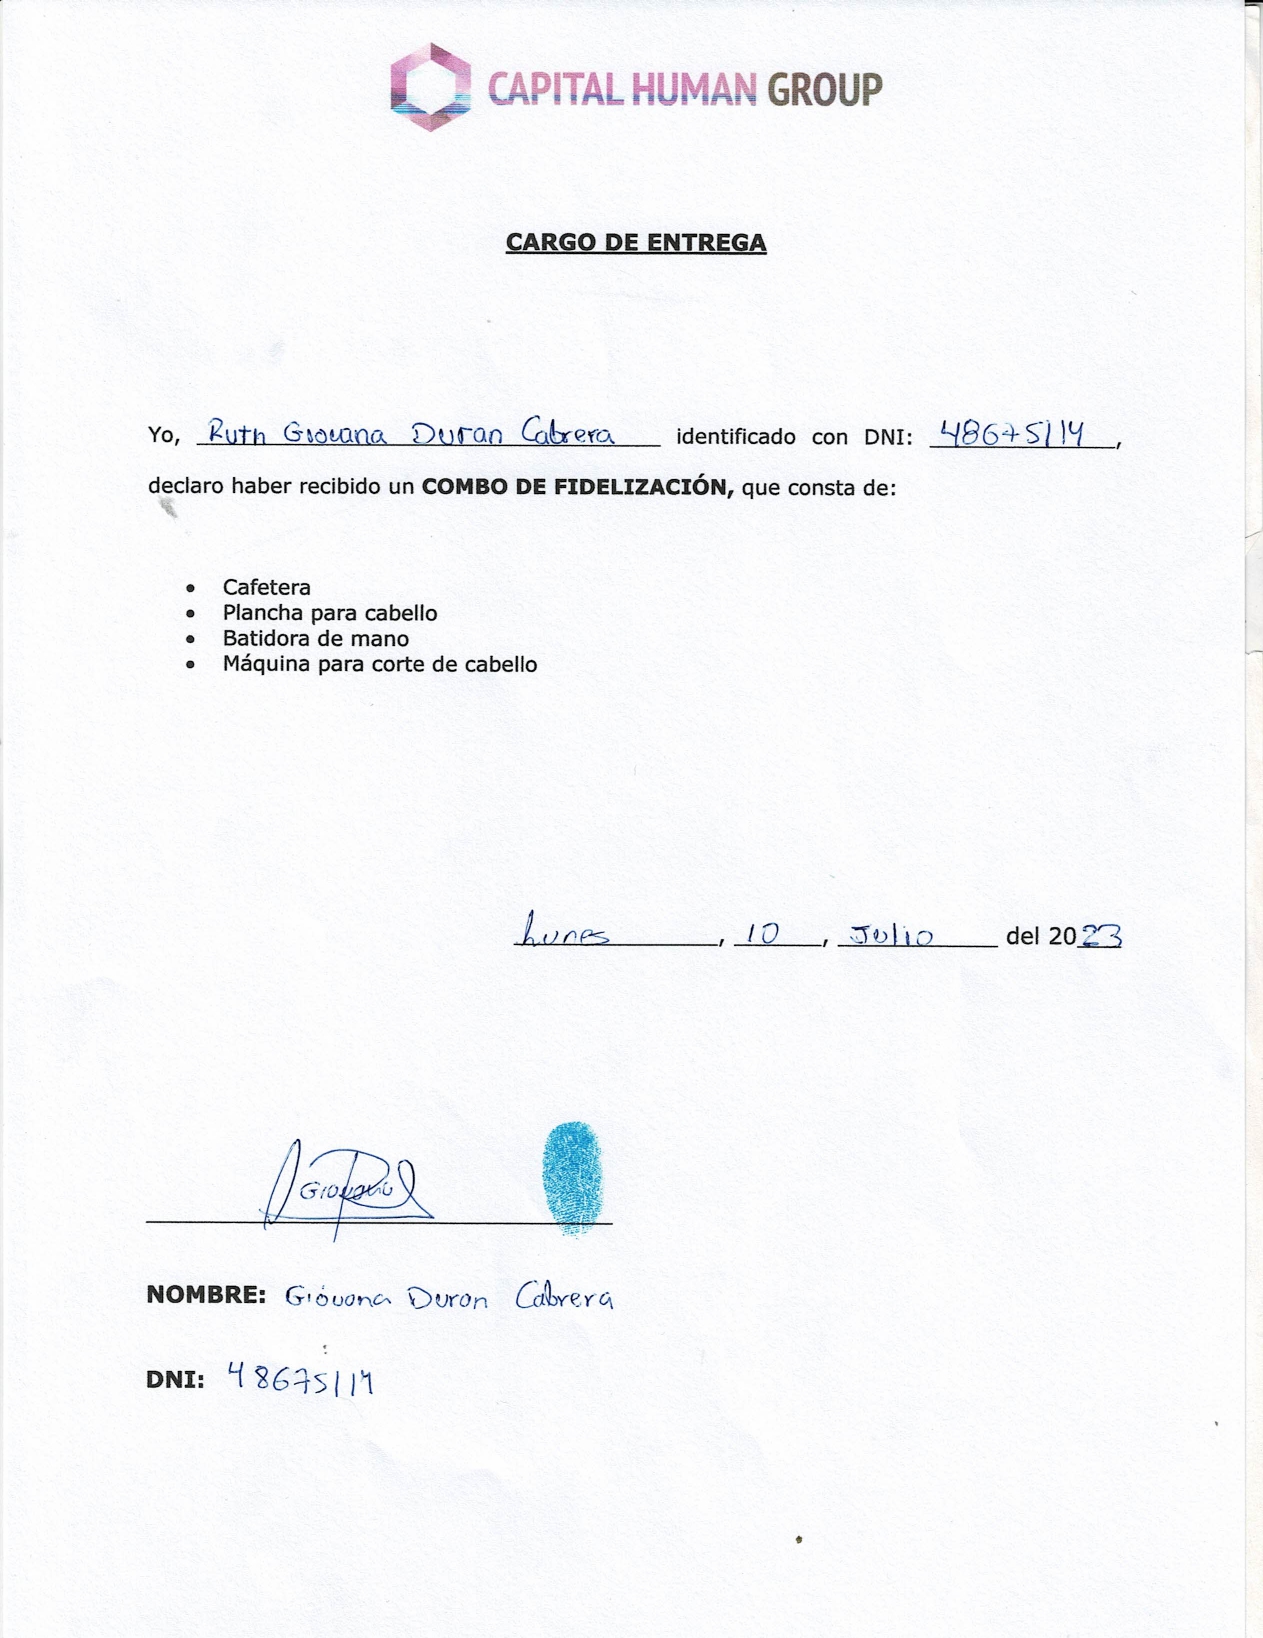 CAPITAL HUMAN GROUP
CARGO DE ENTREGA
Yo, Ruth Giovana Duran Cabrera identificado con DNI: 48675114,
declaro haber recibido un COMBO DE FIDELIZACIÓN, que consta de:
• Cafetera
• Plancha para cabello
• Batidora de mano
• Máquina para corte de cabello
Lunes, 10, Julio del 2023
Giovana
NOMBRE: Giovana Duran Cabrera
DNI: 48675114